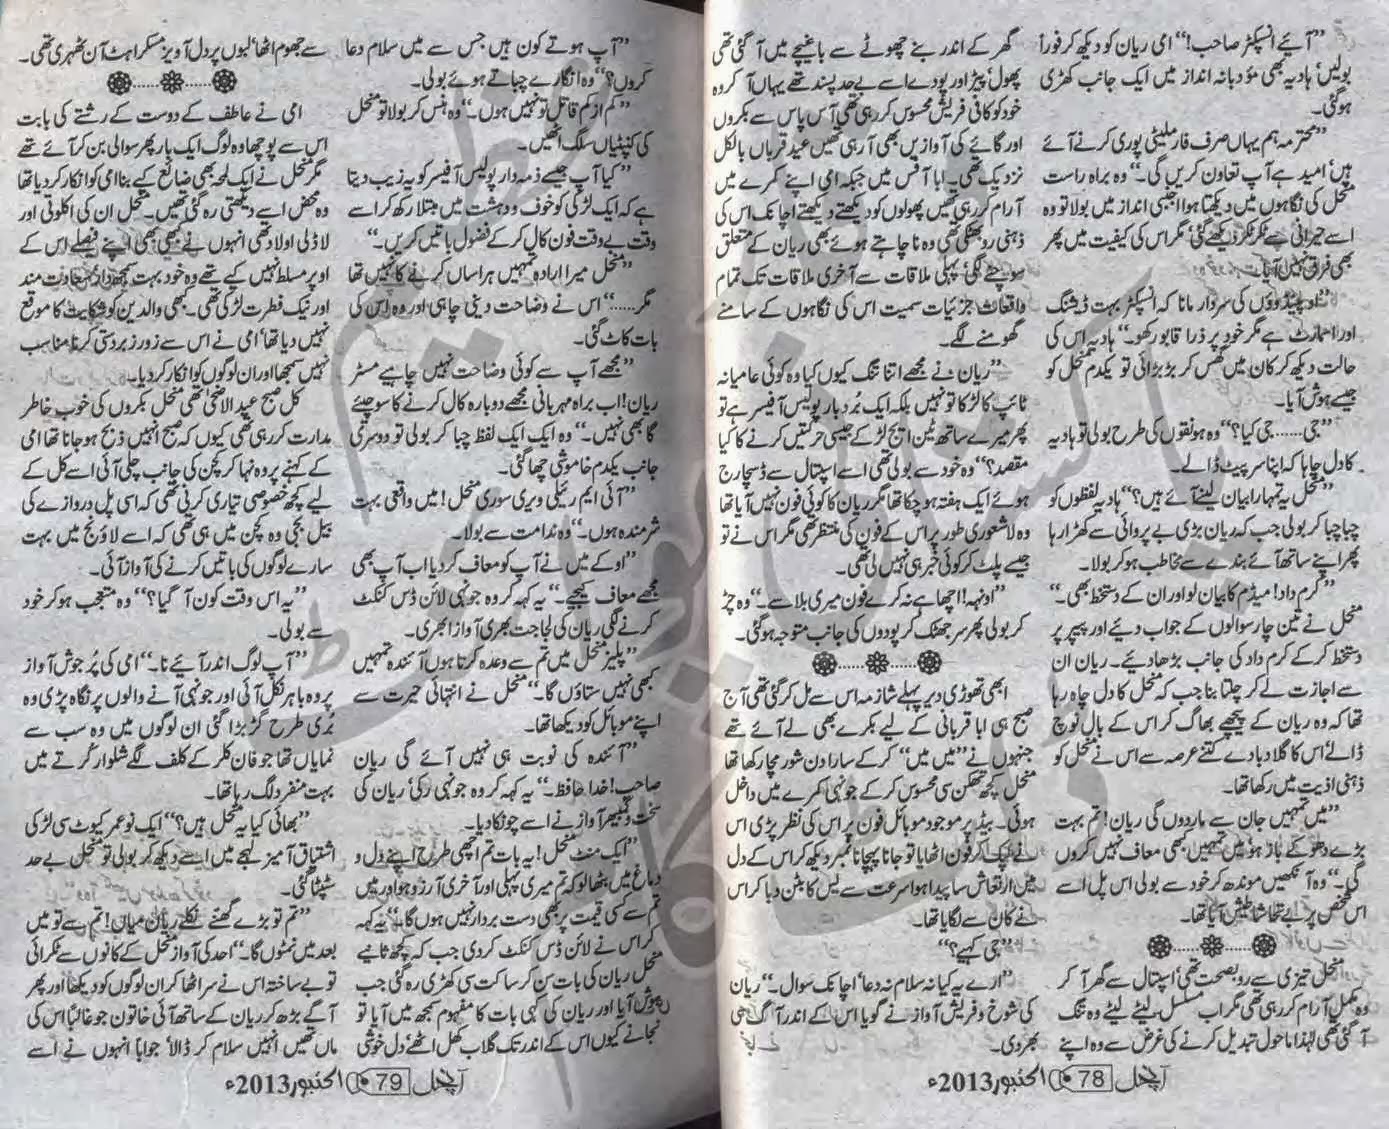 ”آیئے انسپکٹر صاحب!“ امی ریان کو دیکھ کر فوراً
بولیں‘ ہادیہ بھی مؤدبانہ انداز میں ایک جانب کھڑی
ہوگئی۔
”محترمہ ہم یہاں صرف فارملیٹی پوری کرنے آئے
ہیں‘ امید ہے آپ تعاون کریں گی۔“ وہ براہ راست
منحل کی نگاہوں میں دیکھتا ہوا اجنبی انداز میں بولا تو وہ
اسے حیرانی سے ٹکر ٹکر دیکھے گئی‘ مگر اس کی کیفیت میں پھر
بھی فرق نہیں آیا۔
کی سردار مانا کہ انسپکٹر بہت ڈیشنگ
اور اسمارٹ ہے مگر خود پر ذرا قابو رکھو۔“ ہادیہ اس کی
حالت دیکھ کر کان میں گھس کر بڑبڑائی تو یکدم منحل کو
جیسے ہوش آیا۔
”جی...... جی کیا؟“ وہ ہونقوں کی طرح بولی تو ہادیہ
کا دل چاہا کہ اپنا سر پیٹ ڈالے۔
”منحل یہ تمہارا بیان لینے آئے ہیں؟“ ہادیہ لفظوں کو
چبا چبا کر بولی جب کہ ریان بڑی بے پروائی سے کھڑا رہا
پھر اپنے ساتھ آئے بندے سے مخاطب ہوکر بولا۔
”کرم داد! میڈم کا بیان لو اور ان کے دستخط بھی۔“
منحل نے تین چار سوالوں کے جواب دیئے اور پیپر پر
دستخط کرکے کرم داد کی جانب بڑھا دیئے۔ ریان ان
سے اجازت لے کر چلتا بنا جب کہ منحل کا دل چاہ رہا
تھا کہ وہ ریان کے پیچھے بھاگ کر اس کے بال نوچ
ڈالے‘ اس کا گلا دبادے کتنے عرصہ سے اس نے منحل کو
ذہنی اذیت میں رکھا تھا۔
”میں تمہیں جان سے مار دوں گی ریان! تم بہت
بڑے دھوکے باز ہو‘ میں تمہیں کبھی معاف نہیں کروں
گی۔“ وہ آنکھیں موندھ کر خود سے بولی اس پل اسے
اس شخص پر بے تحاشا طیش آیا تھا۔
......
منحل تیزی سے رو بصحت تھی‘ اسپتال سے گھر آکر
وہ مکمل آرام کررہی تھی مگر اب مسلسل لیٹے لیٹے وہ تنگ
آگئی تھی لہٰذا ماحول تبدیل کرنے کی غرض سے وہ اپنے
گھر کے اندر بنے چھوٹے سے باغیچے میں آگئی تھی
پھول‘ پیڑ اور پودے اسے بے حد پسند تھے یہاں آکر وہ
خود کو کافی فریش محسوس کررہی تھی آس پاس سے بکروں
اور گائے کی آوازیں بھی آرہی تھیں عید قرباں بالکل
نزدیک تھی۔ ابا آفس میں جبکہ امی اپنے کمرے میں
آرام کررہی تھیں پھولوں کو دیکھتے دیکھتے اچانک اس کی
ذہنی رو بھٹکی تھی وہ نا چاہتے ہوئے بھی ریان کے متعلق
سوچنے لگی‘ پہلی ملاقات سے آخری ملاقات تک تمام
واقعات جزئیات سمیت اس کی نگاہوں کے سامنے
گھومنے لگے۔
”ریان نے مجھے اتنا تنگ کیوں کیا وہ کوئی عامیانہ
ٹائپ کا لڑکا تو نہیں بلکہ ایک بُردبار پولیس آفیسر ہے تو
پھر میرے ساتھ ٹین ایج لڑکے جیسی حرکتیں کرنے کا کیا
مقصد؟“ وہ خود سے بولی تھی اسے اسپتال سے ڈسچارج
ہوئے ایک ہفتہ ہوچکا تھا مگر ریان کا کوئی فون نہیں آیا تھا
وہ لاشعوری طور پر اس کے فون کی منتظر تھی مگر اس نے تو
جیسے پلٹ کر کوئی خبر ہی نہیں لی تھی۔
”اونہہ! اچھا ہے نہ کرے فون میری بلا سے۔“ وہ چڑ
کر بولی پھر سر جھٹک کر پودوں کی جانب متوجہ ہوگئی۔
......
ابھی تھوڑی دیر پہلے شازمہ اس سے مل کر گئی تھی آج
صبح ہی ابا قربانی کے لیے بکرے بھی لے آئے تھے
جنہوں نے ”میں میں“ کرکے سارا دن شور مچا رکھا تھا
منحل کچھ تھکن سی محسوس کرکے جونہی کمرے میں داخل
ہوئی۔ بیڈ پر موجود موبائل فون پر اس کی نظر پڑی اس
نے لپک کر فون اٹھایا تو جانا پہچانا نمبر دیکھ کر اس کے دل
میں ارتعاش سا پیدا ہوا سرعت سے لیس کا بٹن دبا کر اس
نے کان سے لگایا تھا۔
”جی کہیے؟“
”ارے یہ کیا نہ سلام نہ دعا‘ اچانک سوال۔“ ریان
کی شوخ و فریش آواز نے گویا اس کے اندر آگ ہی
بھردی۔
آنچل 78 اکتوبر 2013ء
”آپ ہوتے کون ہیں جس سے میں سلام دعا
کروں؟“ وہ انگارے چباتے ہوئے بولی۔
”کم از کم قاتل تو نہیں ہوں۔“ وہ ہنس کر بولا تو منحل
کی کنپٹیاں سلگ اٹھیں۔
”کیا آپ جیسے ذمہ دار پولیس آفیسر کو یہ زیب دیتا
ہے کہ ایک لڑکی کو خوف و دہشت میں مبتلا رکھ کر اسے
وقت بے وقت فون کال کرکے فضول باتیں کریں۔“
”منحل میرا ارادہ تمہیں ہراساں کرنے کا نہیں تھا
مگر......“ اس نے وضاحت دینی چاہی اور وہ اس کی
بات کاٹ گئی۔
”مجھے آپ سے کوئی وضاحت نہیں چاہیے مسٹر
ریان! اب براہ مہربانی مجھے دوبارہ کال کرنے کا سوچیئے
گا بھی نہیں۔“ وہ ایک ایک لفظ چبا کر بولی تو دوسری
جانب یکدم خاموشی چھاگئی۔
”آئی ایم رئیلی ویری سوری منحل! میں واقعی بہت
شرمندہ ہوں۔“ وہ ندامت سے بولا۔
”اوکے میں نے آپ کو معاف کردیا اب آپ بھی
مجھے معاف کیجیے۔“ یہ کہہ کر وہ جونہی لائن ڈس کنکٹ
کرنے لگی ریان کی لجاجت بھری آواز ابھری۔
”پلیز منحل میں تم سے وعدہ کرتا ہوں آئندہ تمہیں
کبھی نہیں ستاؤں گا۔“ منحل نے انتہائی حیرت سے
اپنے موبائل کو دیکھا تھا۔
”آئندہ کی نوبت ہی نہیں آئے گی ریان
صاحب! خدا حافظ۔“ یہ کہہ کر وہ جونہی رکی‘ ریان کی
سخت و گمبھیر آواز نے اسے چونکا دیا۔
”ایک منٹ منحل! یہ بات تم اچھی طرح اپنے دل و
دماغ میں بٹھا لو کہ تم میری پہلی اور آخری آرزو ہو اور میں
تم سے کسی قیمت پر بھی دست بردار نہیں ہوں گا۔“ یہ کہہ
کر اس نے لائن ڈس کنکٹ کردی جب کہ کچھ ثانیے
منحل ریان کی بات سن کر ساکت سی کھڑی رہ گئی جب
ہوش آیا اور ریان کی کہی بات کا مفہوم سمجھ میں آیا تو
نجانے کیوں اس کے اندر تک گلاب کھل اٹھے‘ دل خوشی
سے جھوم اٹھا‘ لبوں پر دل آویز مسکراہٹ آن ٹھہری تھی۔
......
امی نے عاطف کے دوست کے رشتے کی بابت
اس سے پوچھا وہ لوگ ایک بار پھر سوالی بن کر آئے تھے
مگر منحل نے ایک لمحہ بھی ضائع کیے بنا امی کو انکار کردیا تھا
وہ محض اسے دیکھتی رہ گئی تھیں۔ منحل ان کی اکلوتی اور
لاڈلی اولاد تھی انہوں نے کبھی بھی اپنے فیصلے اس کے
اوپر مسلط نہیں کیے تھے وہ خود بہت سمجھ دار‘ سعادت مند
اور نیک فطرت لڑکی تھی۔ کبھی والدین کو شکایت کا موقع
نہیں دیا تھا‘ امی نے اس سے زور زبردستی کرنا مناسب
نہیں سمجھا اور ان لوگوں کو انکار کردیا۔
کل صبح عید الاضحیٰ تھی منحل بکروں کی خوب خاطر
مدارت کررہی تھی کیوں کہ صبح انہیں ذبح ہو جانا تھا امی
کے کہنے پر وہ نہا کر کچن کی جانب چلی آئی اسے کل کے
لیے کچھ خصوصی تیاری کرنی تھی کہ اسی پل دروازے کی
بیل بجی وہ کچن میں ہی تھی کہ اسے لاؤنج میں بہت
سارے لوگوں کی باتیں کرنے کی آواز آئی۔
”یہ اس وقت کون آگیا؟“ وہ متعجب ہوکر خود
سے بولی۔
”آپ لوگ اندر آیئے نا۔“ امی کی پُرجوش آواز
پر وہ باہر نکل آئی اور جونہی آنے والوں پر نگاہ پڑی وہ
بُری طرح گڑبڑا گئی ان لوگوں میں وہ سب سے
نمایاں تھا جو فان کلر کے کلف لگے شلوار کُرتے میں
بہت منفرد لگ رہا تھا۔
”بھائی کیا یہ منحل ہیں؟“ ایک نوعمر کیوٹ سی لڑکی
اشتیاق آمیز لہجے میں اسے دیکھ کر بولی تو منحل بے حد
سٹپٹا گئی۔
”تم تو بڑے گھنے نکلے ریان میاں! تم سے تو میں
بعد میں نمٹوں گا۔“ احد کی آواز منحل کے کانوں سے ٹکرائی
تو بے ساختہ اس نے سر اٹھا کر ان لوگوں کو دیکھا اور پھر
آگے بڑھ کر ریان کے ساتھ آئی خاتون جو غالباً اس کی
ماں تھیں انہیں سلام کر ڈالا‘ جواباً انہوں نے اسے
آنچل 79 اکتوبر 2013ء